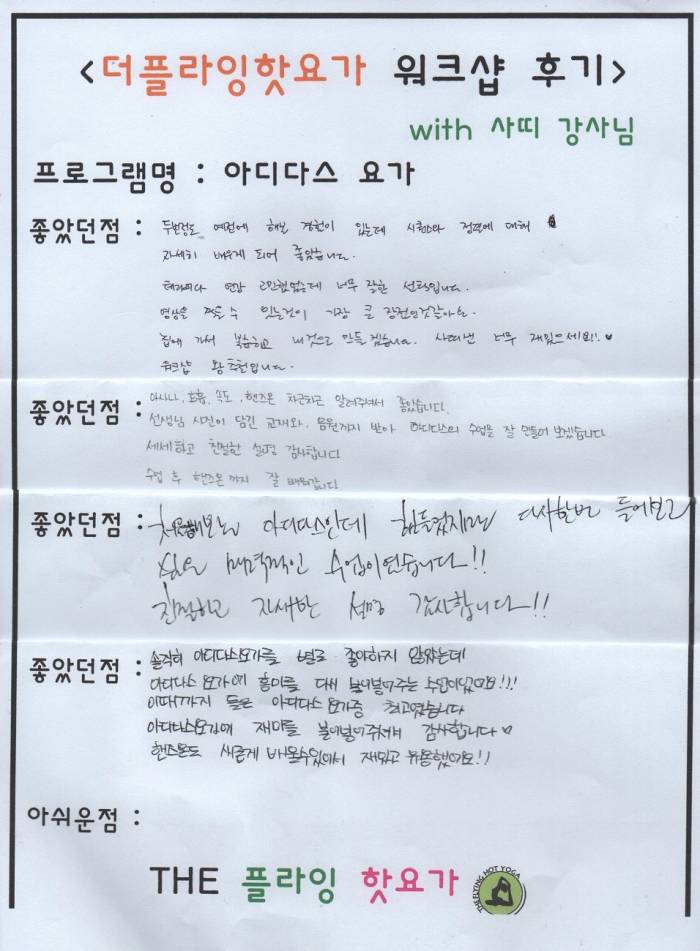 <더플라잉핫요가 워크샵 후기>
with 사띠 강사님
프로그램명 : 아디다스 요가
좋았던점 : 두번정도 예전에 해본 경험이 있는데 시퀀스와 정렬에 대해
자세히 배우게 되어 좋았습니다.
고민했었는데 너무 잘한 선택입니다.
영상을 찍을 수 있는것이 가장 큰 장점인것같아요.
집에 가서 복습하고 내것으로 만들겠습니다. 사띠쌤 너무 재밌으세요!! ♥
워크샵 왕추천입니다.
좋았던점 : 아사나, 호흡, 속도, 핸즈온 차근차근 알려주셔서 좋았습니다.
선생님 사진이 담긴 교재와, 음원까지 받아 아디다스의 수업을 잘 만들어 보겠습니다
세세하고 친절한 설명 감사합니다
수업 후 핸즈온까지 잘 배워갑니다.
좋았던점 : 처음해보는 아디다스인데 힘들었지만 다시한번 들어보고
싶은 매력적인 수업이였습니다!!
친절하고 자세한 설명 감사합니다!!
좋았던점 : 솔직히 아디다스요가를 별로 좋아하지 않았는데
아디다스 요가에 흥미를 다시 불어넣어주는 수업이였어요!!!
이때까지 들은 아디다스 요가중 최고였습니다
아디다스요가에 재미를 불어넣어주셔서 감사합니다♡
핸즈온도 새롭게 배울수있어서 재밌고 유용했어요!!
아쉬운점 :
THE 플라잉 핫요가
THE FLYING HOT YOGA